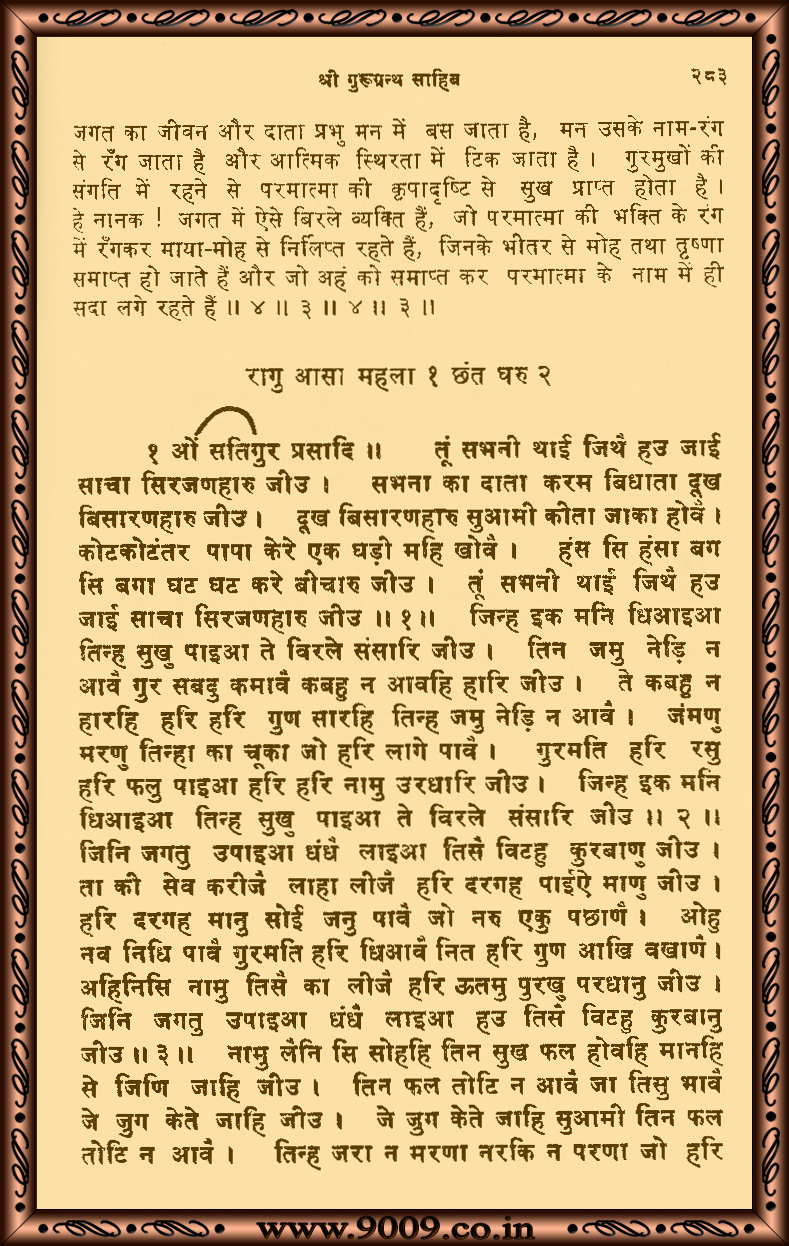 श्री गुरूग्रन्थ साहिब
२८३
जगत का जीवन और दाता प्रभु मन में बस जाता है, मन उसके नाम-रंग
से रँग जाता है और आत्मिक स्थिरता में टिक जाता है। गुरमुखों की
संगति में रहने से परमात्मा की कृपादृष्टि से सुख प्राप्त होता है।
हे नानक ! जगत में ऐसे बिरले व्यक्ति हैं, जो परमात्मा की भक्ति के रंग
में रँगकर माया-मोह से निर्लिप्त रहते हैं, जिनके भीतर से मोह तथा तृष्णा
समाप्त हो जाते हैं और जो अहं को समाप्त कर परमात्मा के नाम में ही
सदा लगे रहते हैं ॥ ४ ॥ ३ ॥ ४ ॥ ३ ॥
रागु आसा महला १ छंत घरु २
१ ओं सतिगुर प्रसादि ॥ तूं सभनी थाई जिथै हउ जाई
साचा सिरजणहारु जीउ । सभना का दाता करम बिधाता दूख
बिसारणहारु जीउ । दूख बिसारणहारु सुआमी कीता जाका होवै ।
कोटकोटंतर पापा केरे एक घड़ी महि खोवै । हंस सि हंसा बग
सि बगा घट घट करे बीचारु जीउ । तूं सभनी थाई जिथै हउ
जाई साचा सिरजणहारु जीउ ॥ १ ॥ जिन्ह इक मनि धिआइआ
तिन्ह सुखु पाइआ ते विरले संसारि जीउ । तिन जमु नेड़ि न
आवै गुर सबदु कमावै कबहु न आवहि हारि जीउ । ते कबहु न
हारहि हरि हरि गुण सारहि तिन्ह जमु नेड़ि न आवै । जंमणु
मरणु तिन्हा का चूका जो हरि लागे पावै । गुरमति हरि रसु
हरि फलु पाइआ हरि हरि नामु उरधारि जीउ । जिन्ह इक मनि
धिआइआ तिन्ह सुखु पाइआ ते विरले संसारि जीउ ॥ २ ॥
जिनि जगतु उपाइआ धंधै लाइआ तिसै विटहु कुरबाणु जीउ ।
ता की सेव करीजै लाहा लीजै हरि दरगह पाईऐ माणु जीउ ।
हरि दरगह मानु सोई जनु पावै जो नरु एकु पछाणै । ओहु
नब निधि पावै गुरमति हरि धिआवै नित हरि गुण आखि वखाणै ।
अहिनिसि नामु तिसै का लीजै हरि ऊतमु पुरखु परधानु जीउ ।
जिनि जगतु उपाइआ धंधै लाइआ हउ तिसै विटहु कुरबानु
जीउ ॥ ३ ॥ नामु लैनि सि सोहहि तिन सुख फल होवहि मानहि
से जिणि जाहि जीउ । तिन फल तोटि न आवै जा तिसु भावै
जे जुग केते जाहि जीउ । जे जुग केते जाहि सुआमी तिन फल
तोटि न आवै । तिन्ह जरा न मरणा नरकि न परणा जो हरि
www.9009.co.in